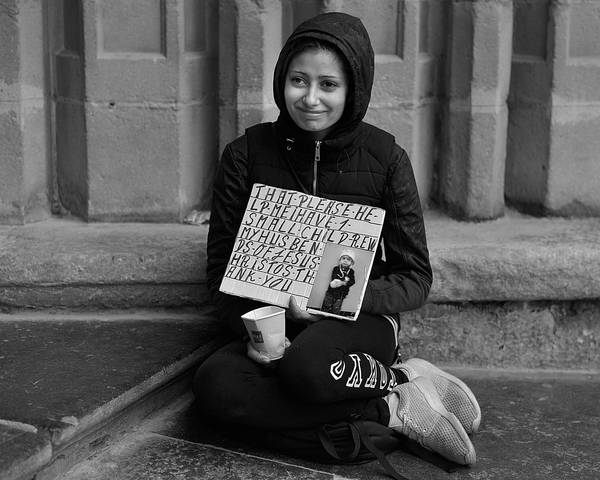 THAT·PLEASE·HE-
LP·MEIHAVE 1·
SMALL·CHILDREN
MYHUSBEN
DS·OF JESUS
HRISTOS TH
ANK-YOU